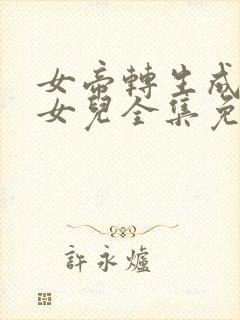 女帝轉生成
女兒全集免
許永爐